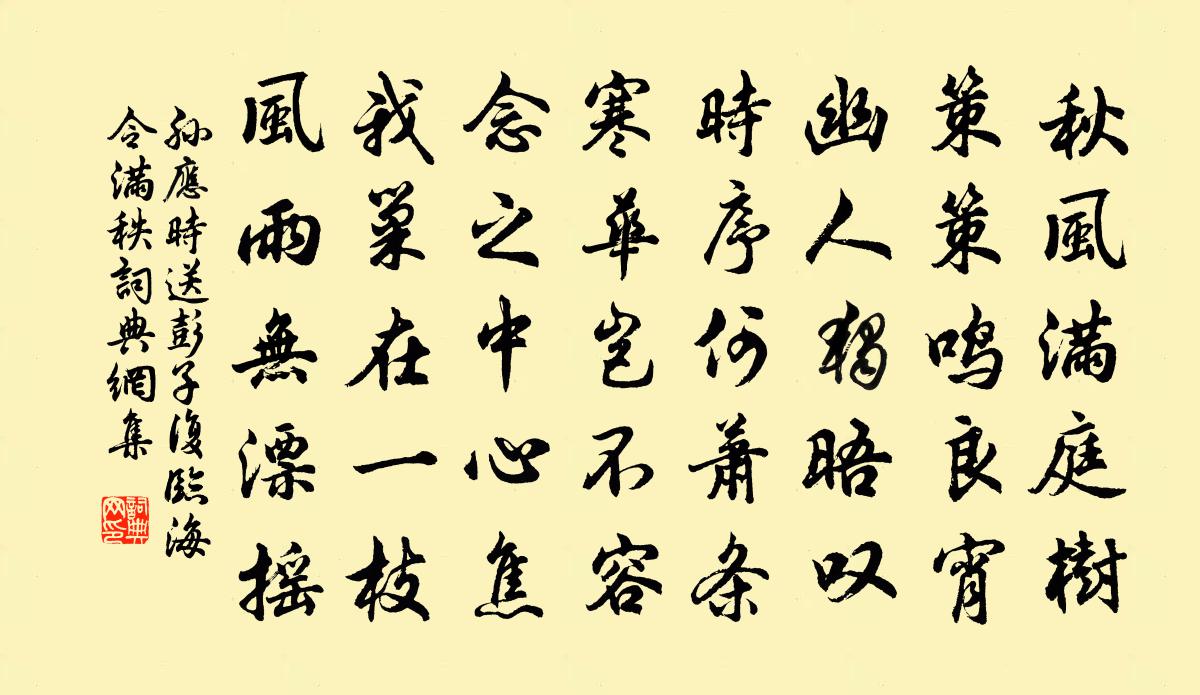 秋風满庭樹
策策鳴良宵
幽人獨晤叹
時序何蕭条
寒華豈不容
念之中心焦
我巢在一枝
風雨無漂摇
孫應時送彭子復臨海
令满秩詞典網集
詞典网印